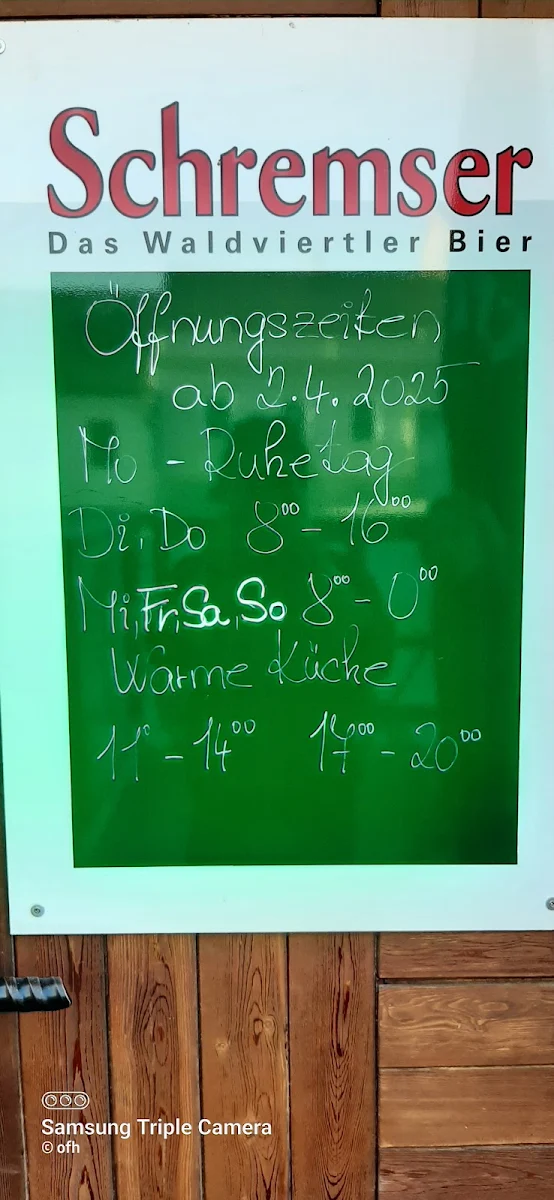 Schremser
Das Waldviertler Bier
Öffnungszeiten
ab 2.4.2025
Mo - Ruhetag
Di, Do 8⁰⁰ - 16⁰⁰
Mi, Fr, Sa, So 8⁰⁰ - 0⁰⁰
Warme Küche
11⁰ - 14⁰⁰ 17⁰⁰ - 20⁰⁰
Samsung Triple Camera
© ofh